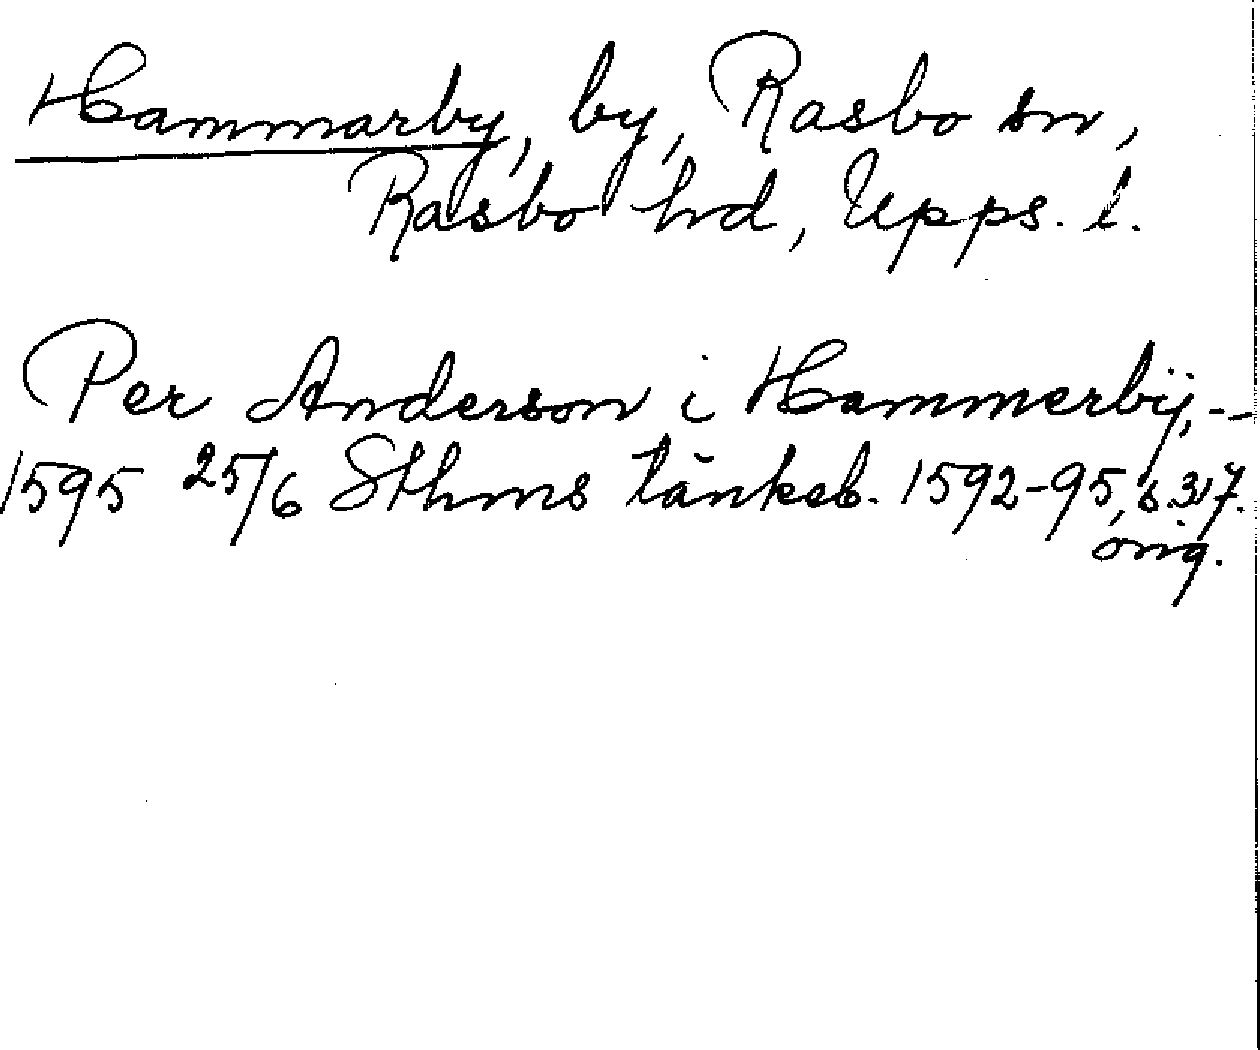 Hammarby, by, Rasbo sn,
Rasbo hd, Upps. l.
Per Anderson i Hammerbÿ, -
1595 25/6 Sthms tänkeb. 1592-95, s. 317.
orig.